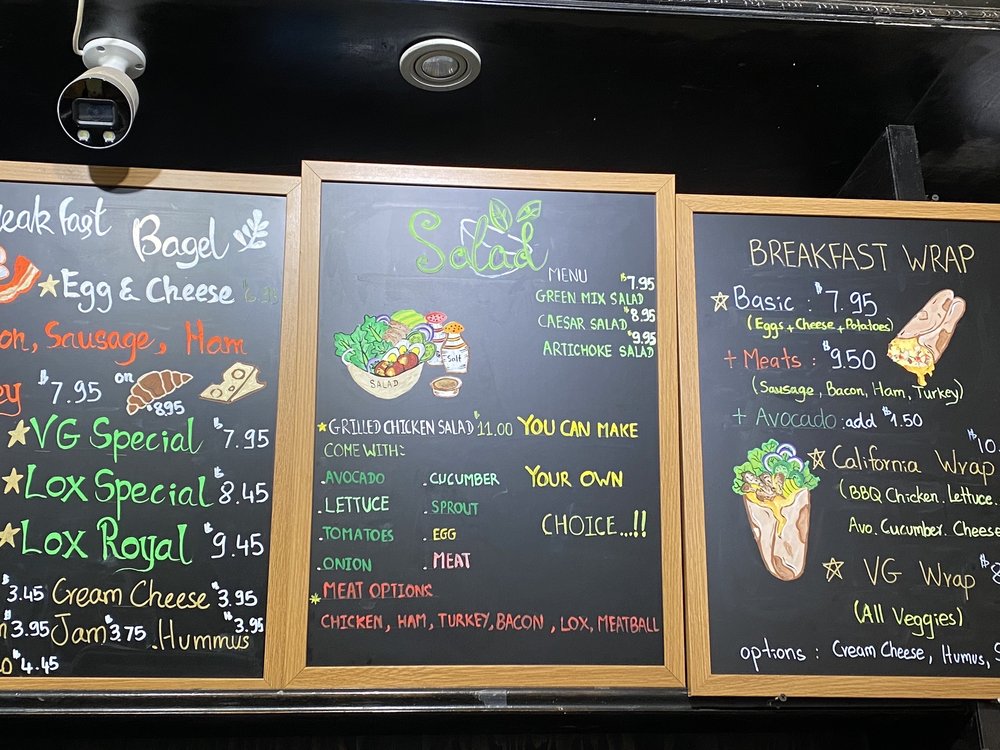 Bagel
Egg & Cheese
Sausage, Ham
$7.95 on $8.95
VG Special $7.95
Lox Special $8.45
Lox Royal $9.45
$3.45 Cream Cheese $3.95
$3.95 Jam $3.75 .Hummus $3.95
$4.45
Salad
MENU $7.95
GREEN MIX SALAD
$8.95
CAESAR SALAD
$9.95
ARTICHOKE SALAD
Salt
SALAD
GRILLED CHICKEN SALAD $11.00 YOU CAN MAKE
COME WITH:
.AVOCADO .CUCUMBER YOUR OWN
.LETTUCE .SPROUT
.TOMATOES .EGG CHOICE...!!
.ONION .MEAT
MEAT OPTIONS
CHICKEN, HAM, TURKEY, BACON, LOX, MEATBALL
BREAKFAST WRAP
Basic : $7.95
(Eggs + Cheese + Potatoes)
+ Meats : $9.50
(Sausage, Bacon, Ham, Turkey)
+ Avocado : add $1.50
$10.
California Wrap
(BBQ Chicken. Lettuce.
Avo. Cucumber. Cheese
VG Wrap $8
(All Veggies)
options : Cream Cheese, Humus,